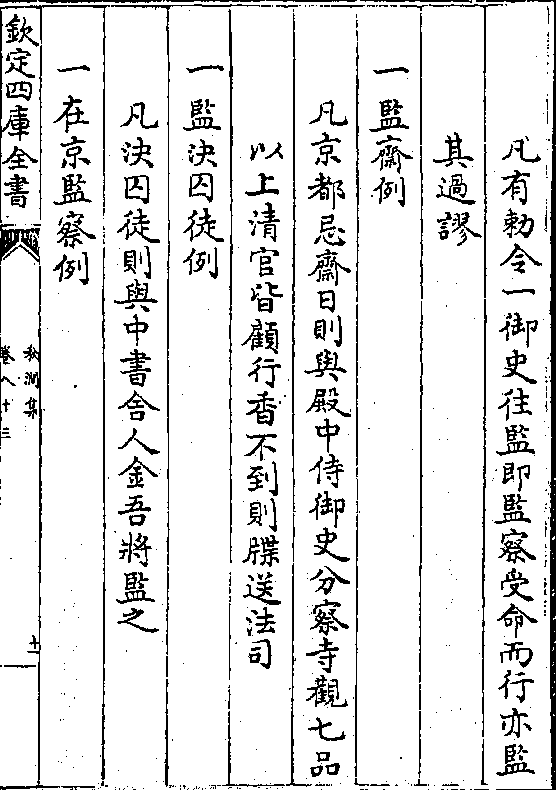 凡有勅令一御史往監即監察受命而行亦監
其過謬
一監齋例
凡京都忌齋日則與殿中侍御史分察寺觀七品
以上清官皆顧行香不到則牒送法司
一監決囚徒例
凡決囚徒則與中書舍人金吾將監之
一在京監察例
欽定四庫全書
秋澗集
卷八十三
十一